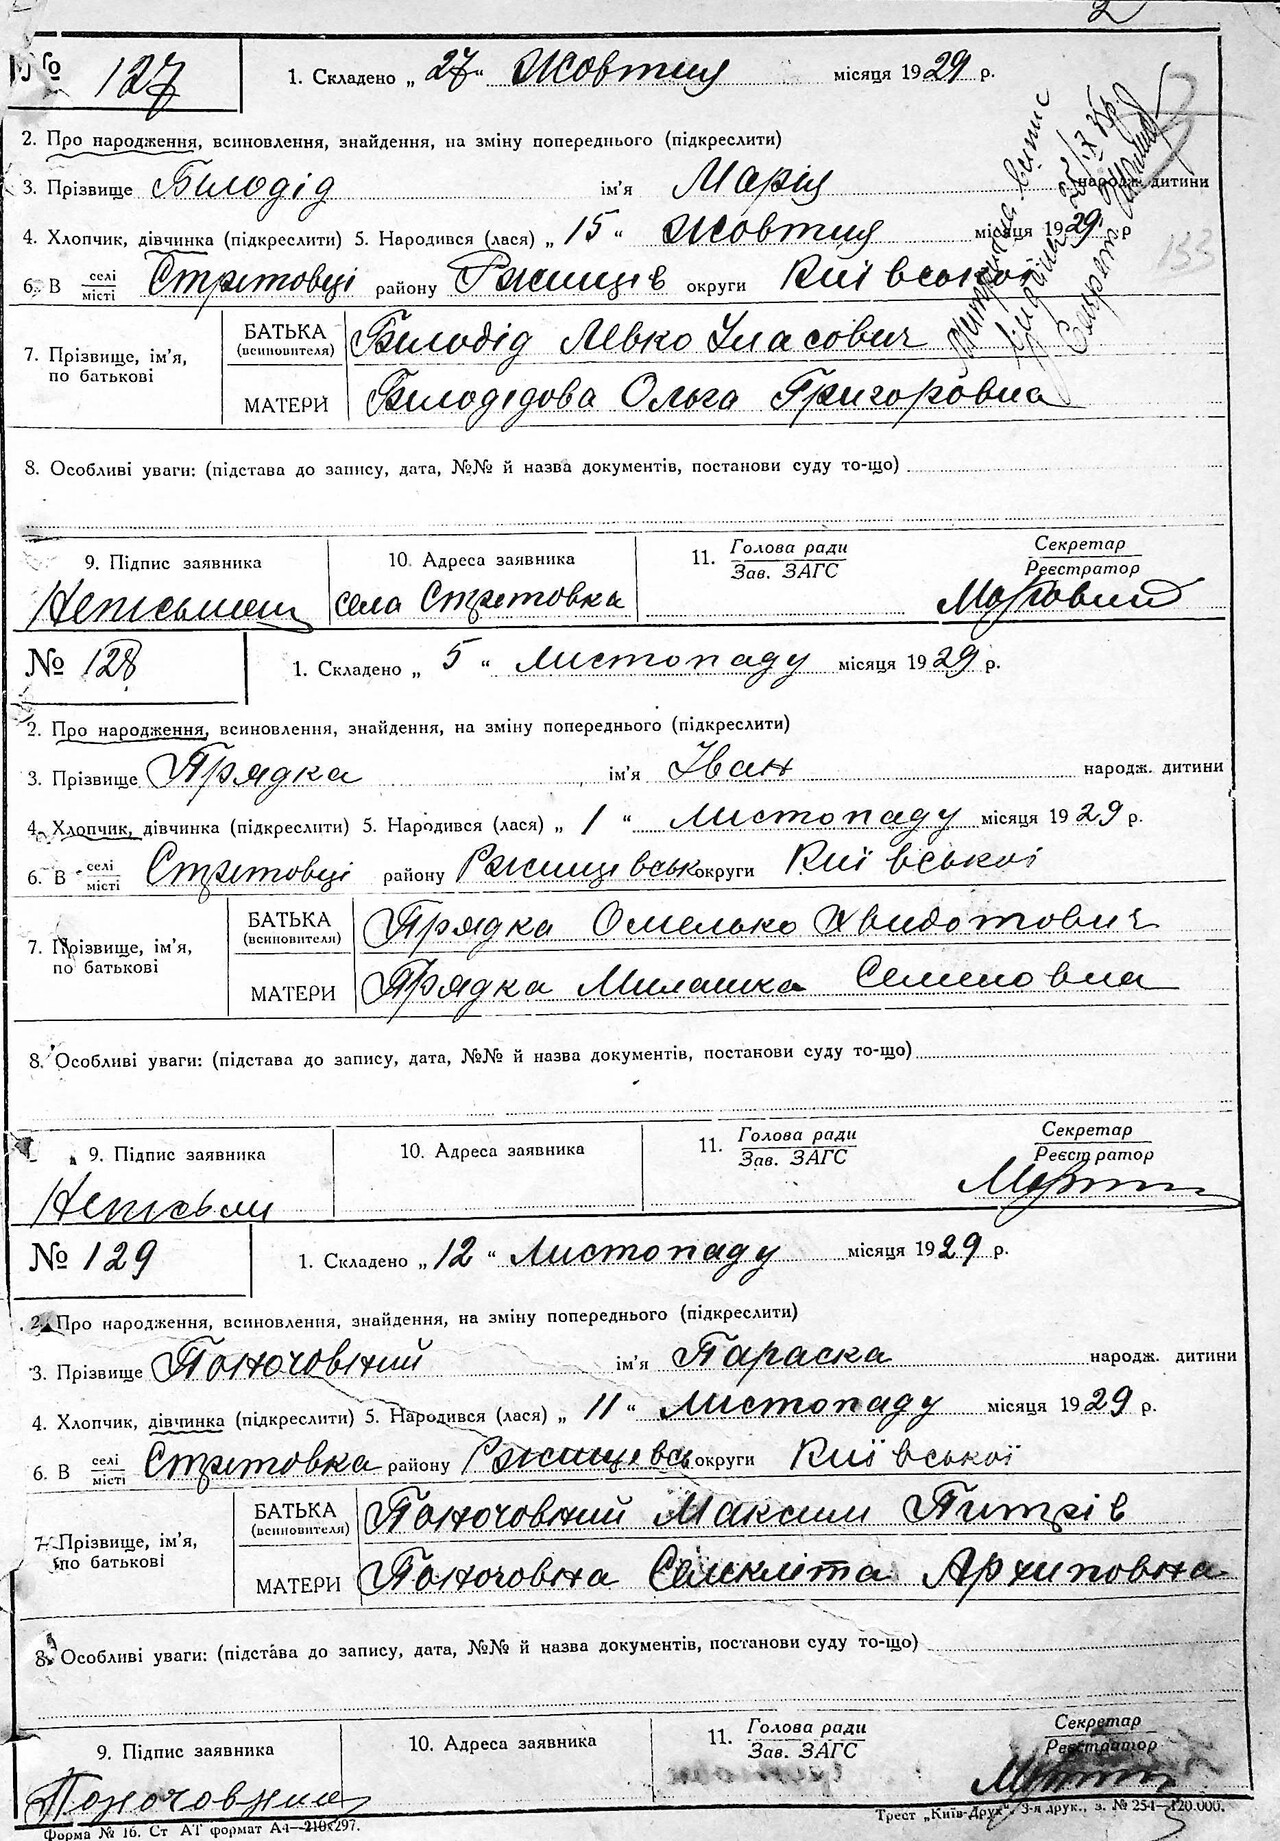 2
№ 127 1. Складено „27“ Жовтня місяця 1929 р.
2. Про народження, всиновлення, знайдення, на зміну попереднього (підкреслити)
3. Прізвище Білодід ім'я Марія народж. дитини
4. Хлопчик, дівчинка (підкреслити) 5. Народився (лася) „15“ Жовтня місяця 1929 р
6. В селі/місті Стритовці району Ржищів округи Київської
153
7. Прізвище, ім'я, по батькові
БАТЬКА (всиновителя) Білодід Левко Уласович
МАТЕРИ Білодідова Ольга Григоровна
8. Особливі уваги: (підстава до запису, дата, №№ й назва документів, постанови суду то-що)
9. Підпис заявника 10. Адреса заявника 11. Голова ради/Зав. ЗАГС Секретар/Реєстратор
села Стритовка
№ 128 1. Складено „5“ Листопаду місяця 1929 р.
2. Про народження, всиновлення, знайдення, на зміну попереднього (підкреслити)
3. Прізвище Прядка ім'я Іван народж. дитини
4. Хлопчик, дівчинка (підкреслити) 5. Народився (лася) „1“ Листопаду місяця 1929 р.
6. В селі/місті Стритовці району Ржищевськ округи Київської
7. Прізвище, ім'я, по батькові
БАТЬКА (всиновителя) Прядка Омелько Хвидотович
МАТЕРИ Прядка Милашка Семеновна
8. Особливі уваги: (підстава до запису, дата, №№ й назва документів, постанови суду то-що)
9. Підпис заявника 10. Адреса заявника 11. Голова ради/Зав. ЗАГС Секретар/Реєстратор
Неписьмн
№ 129 1. Складено „12“ Листопаду місяця 1929 р.
2. Про народження, всиновлення, знайдення, на зміну попереднього (підкреслити)
3. Прізвище Поночовний ім'я Параска народж. дитини
4. Хлопчик, дівчинка (підкреслити) 5. Народився (лася) „11“ Листопаду місяця 1929 р.
6. В селі/місті Стритовка району Ржищевсь округи Київської
7. Прізвище, ім'я, по батькові
БАТЬКА (всиновителя) Поночовний Максим Питрів
МАТЕРИ Поночовна Секлита Архиповна
8. Особливі уваги: (підстава до запису, дата, №№ й назва документів, постанови суду то-що)
9. Підпис заявника 10. Адреса заявника 11. Голова ради/Зав. ЗАГС Секретар/Реєстратор
Поночовний
Форма № 16. Ст АТ формат А4—210x297. Трест „Київ-Друк“. 3-я друк., з. № 254—120.000.